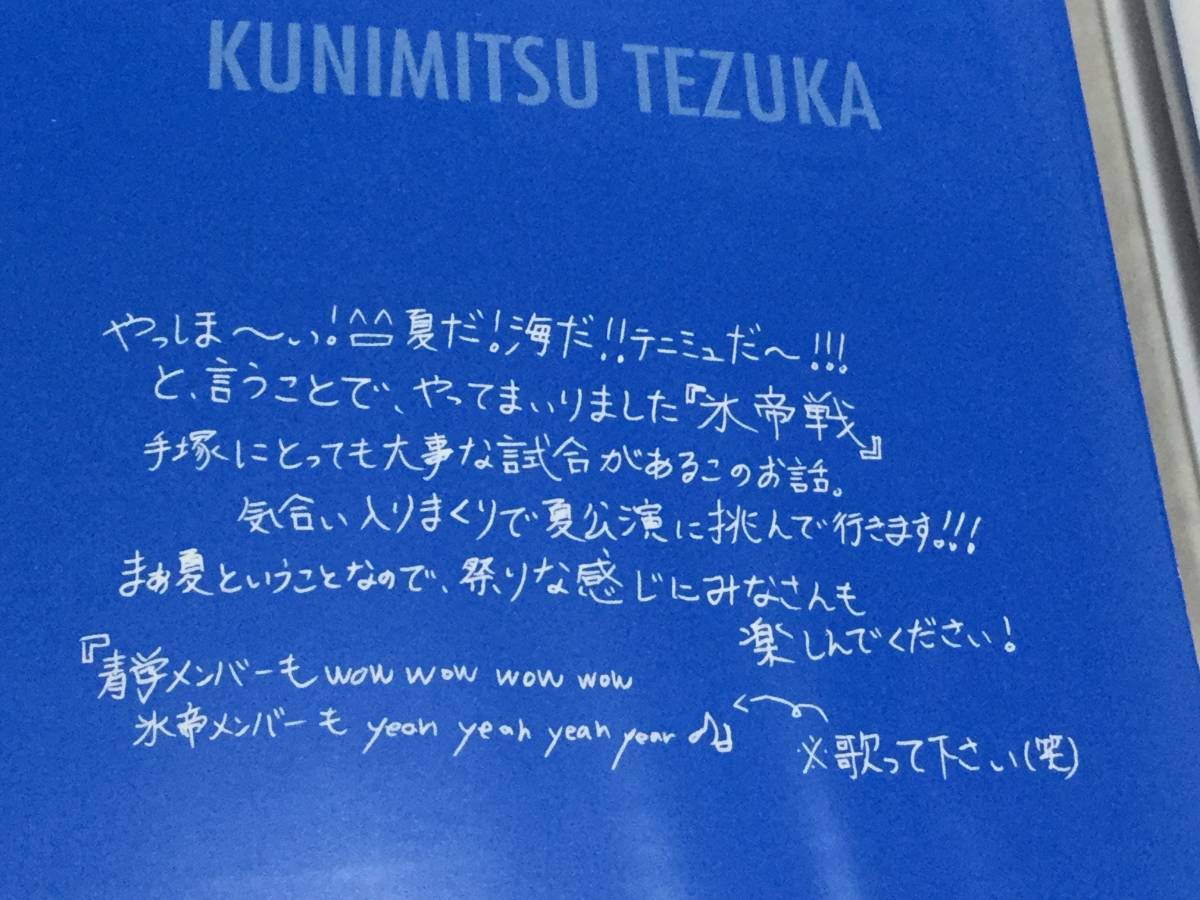 KUNIMITSU TEZUKA
やっほ〜い!^^夏だ!海だ!!テニミュだ〜!!!
と、言うことで、やってまいりました『氷帝戦』
手塚にとっても大事な試合があるこのお話。
気合い入りまくりで夏公演に挑んで行きます!!!
まぁ夏ということなので、祭りな感じにみなさんも
楽しんでください!
『青学メンバーも wow wow wow wow
氷帝メンバーも yeah yeah yeah yeah♪』
※歌って下さい(笑)